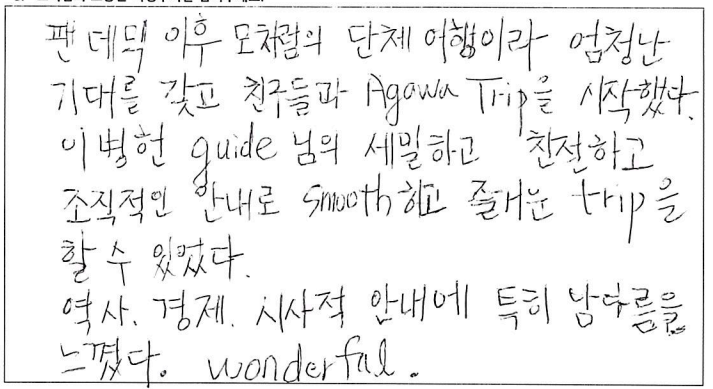 팬데믹 이후 모처럼의 단체 여행이라 엄청난
기대를 갖고 친구들과 Agawa Trip을 시작했다.
이병헌 guide 님의 세밀하고 친절하고
조직적인 안내로 smooth하고 즐거운 trip을
할 수 있었다.
역사. 경제. 시사적 안내에 특히 남다름을
느꼈다. wonderful.